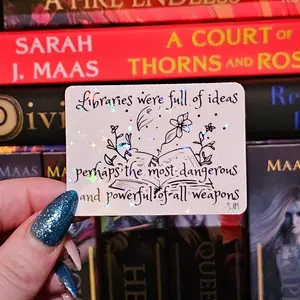 A FIRE ENDLESS
SARAH
J. MAAS
A COURT OF
THORNS AND ROS
Divi
Re
Libraries were full of ideas
perhaps the most dangerous
and powerful of all weapons
SJM
MAAS
MAAS
MAAS
QUEE